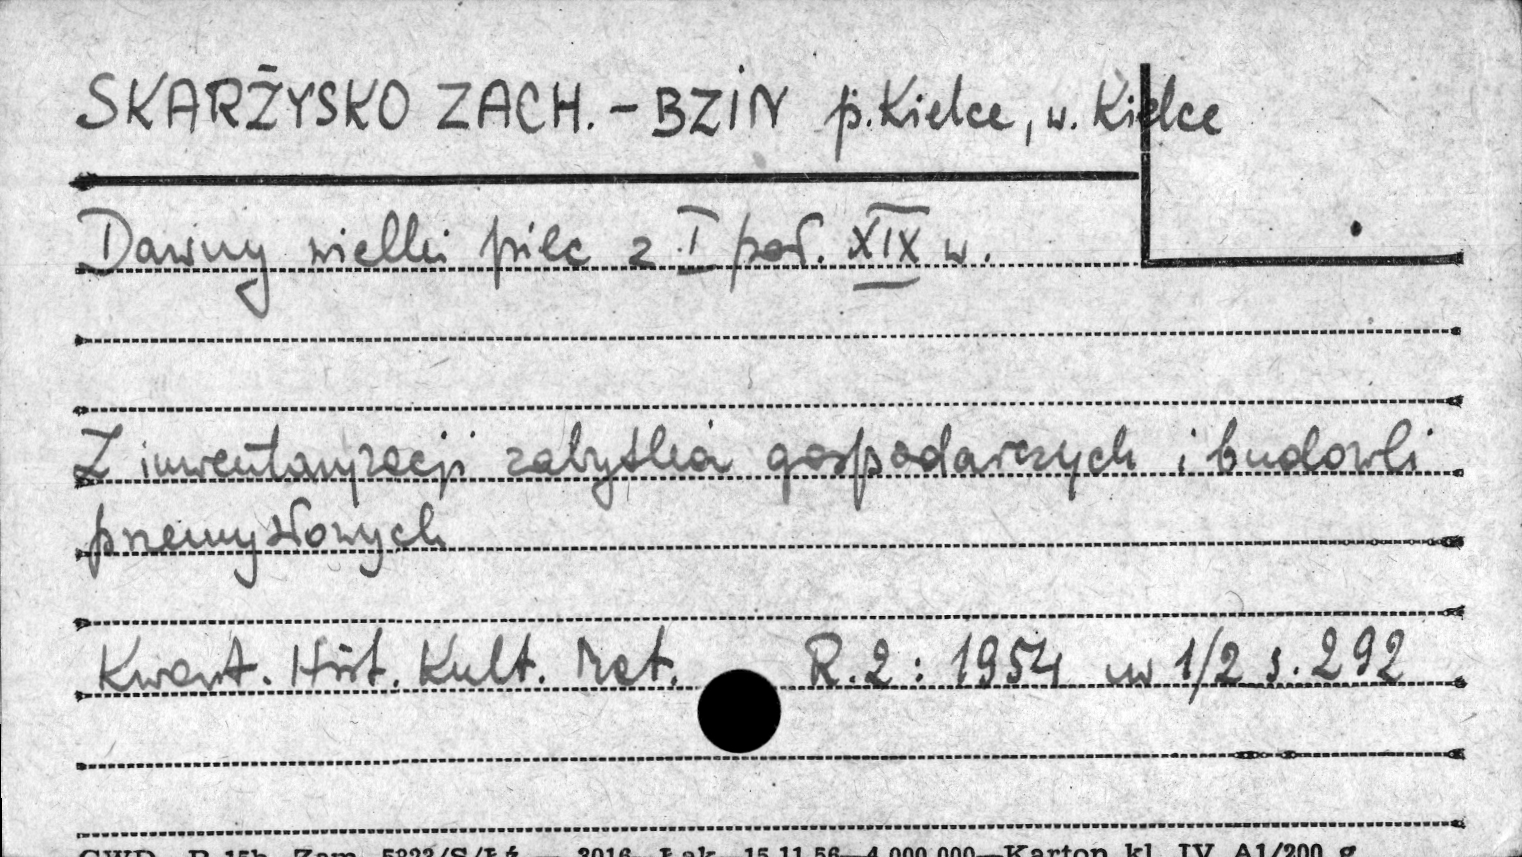 SKARŻYSKO ZACH. - BZIN p. Kielce, w. Kielce
Dawny wielki piec z I poł. XIX w.
Z inwentaryzacji zabytków gospodarczych i budowli
przemysłowych
Kwart. Hist. Kult. Mat. R.2: 1954 nr 1/2 s. 292
GWD. P-15b. Zam. 5823/S/Łź — 2016. Łak. 15.11.56—4.000.000—Karton kl. IV A1/200 g